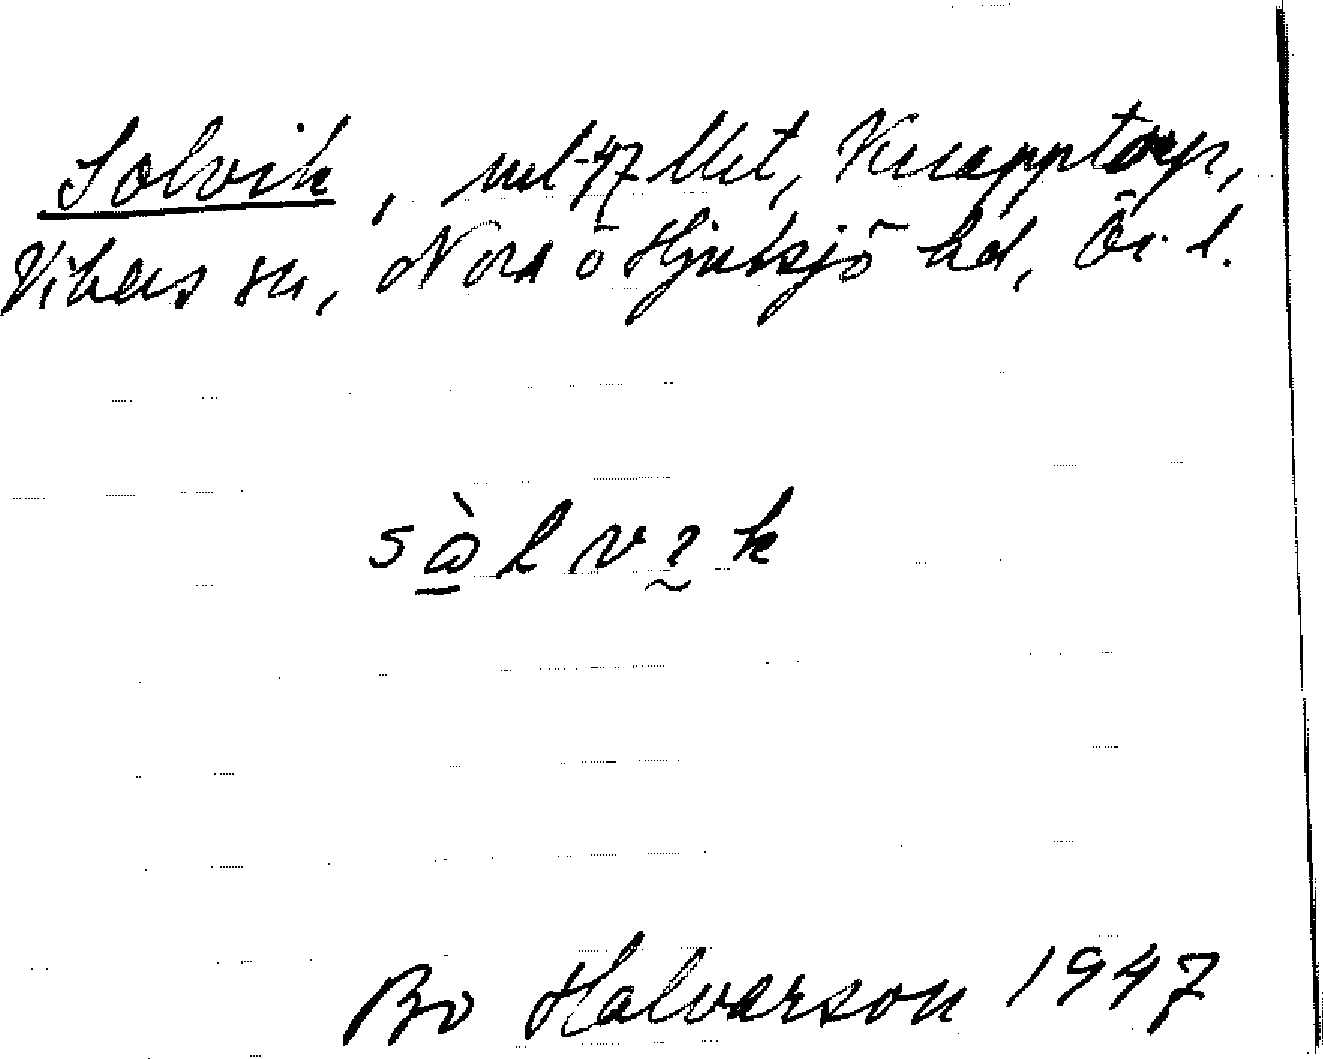 Solvik, nul-47 Met, Knapptorp,
Vikers sn, Nora o Hjulsjö hd, Ör. l.
sὼlvιk
Bo Halvarson 1947